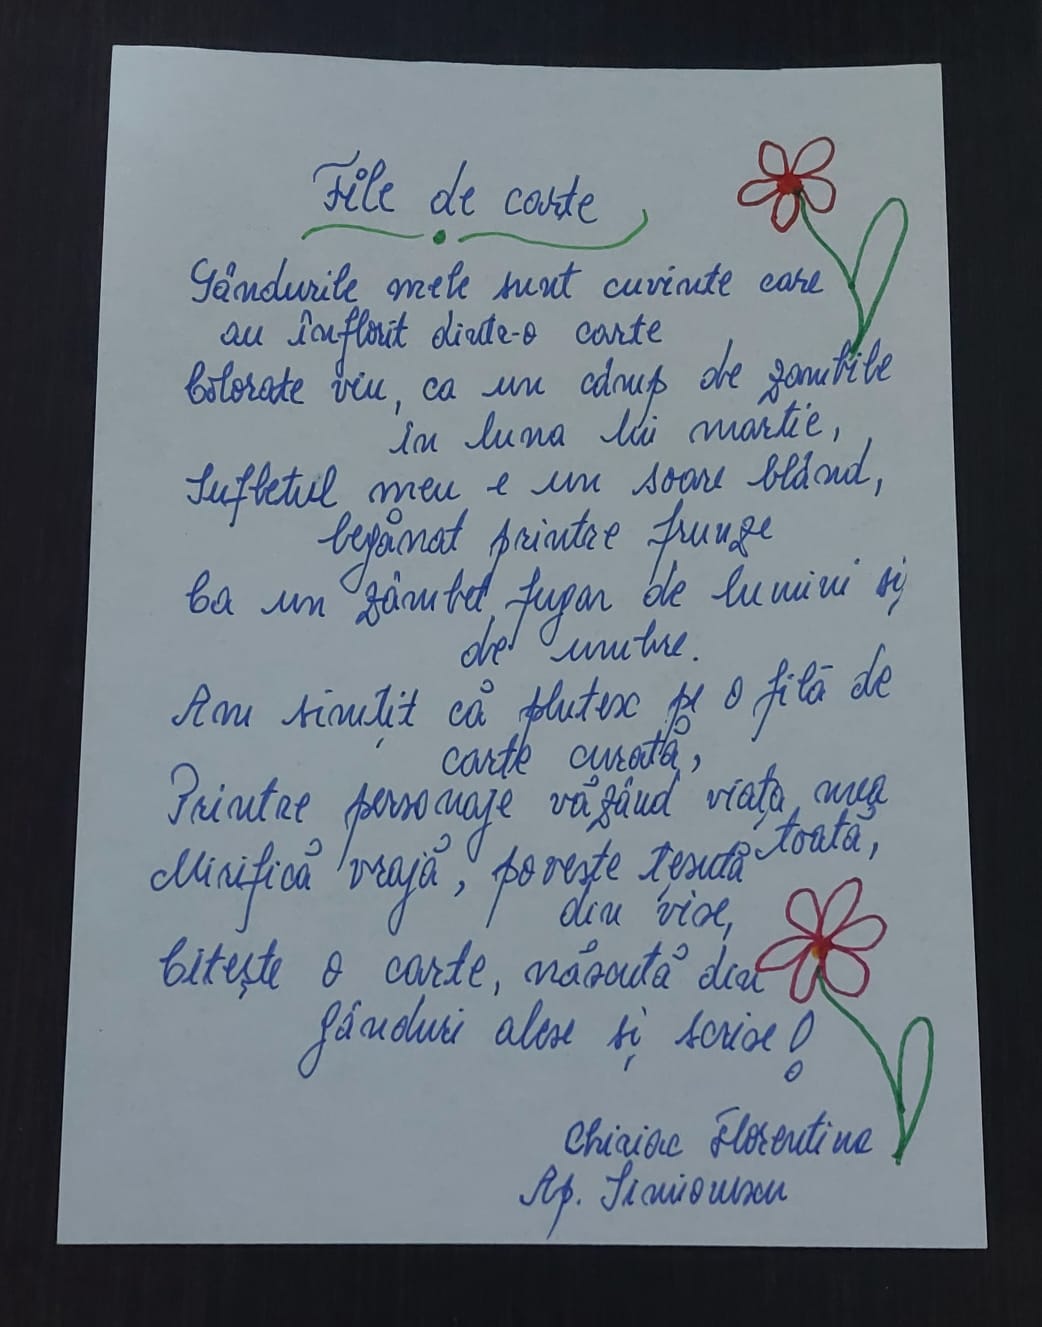 File de carte
Gândurile mele sunt cuvinte care
au înflorit dintr-o carte
Colorate viu, ca un câmp de zambile
în luna lui martie,
Sufletul meu e un soare blând,
legănat printre frunze
Ca un zâmbet fugar de lumini și
de umbre.
Am simțit că plutesc pe o filă de
carte curată,
Printre personaje văzând viața mea
toată,
Mirifică vrajă, poveste țesută
din vise,
Citește o carte, născută din
gânduri alese și scrise!
Chiriac Florentina
Ap. Simionescu